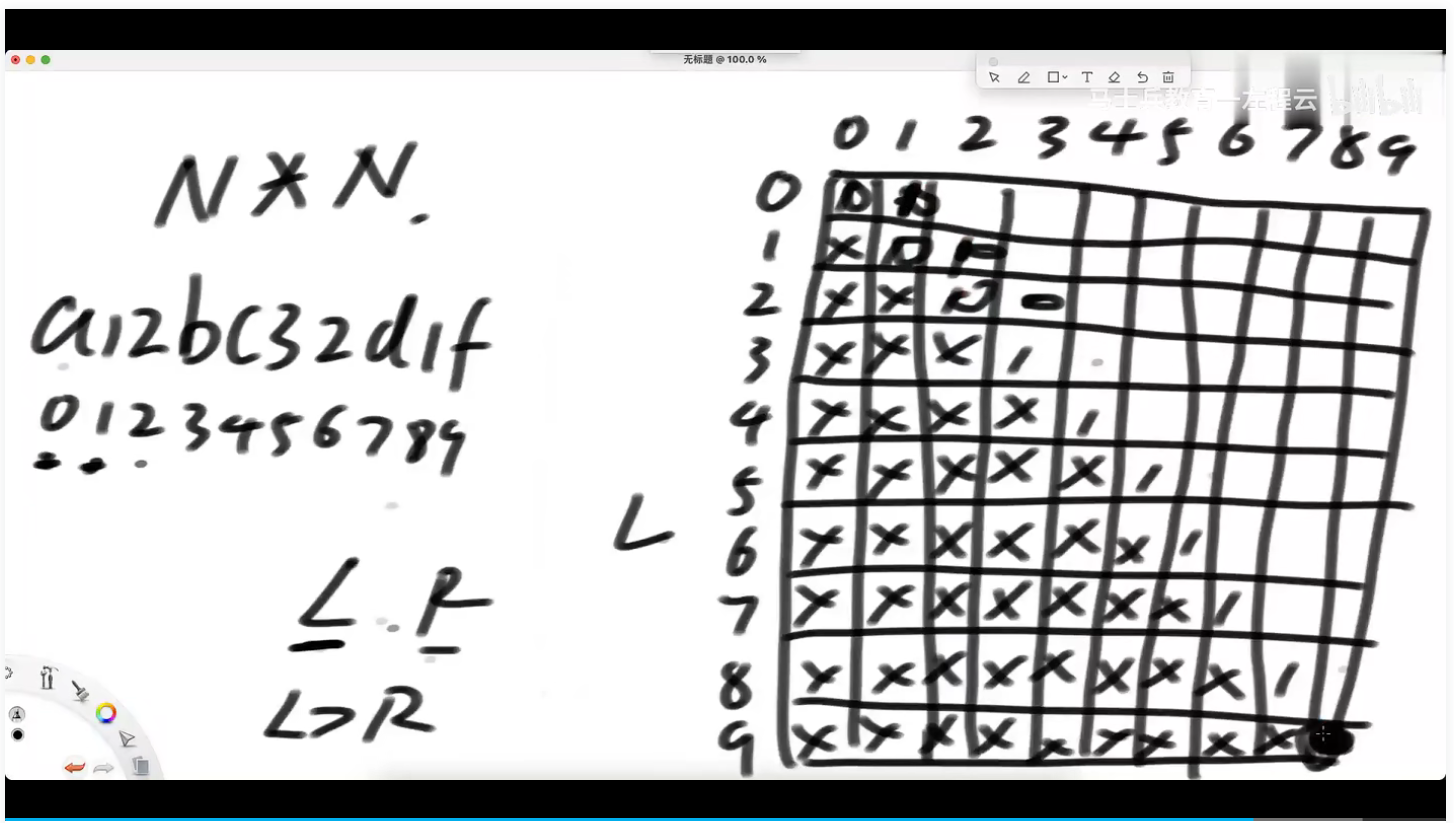 无标题 @ 100.0 %
马士兵教育—左程云
N * N.
a12bc32d1f
0123456789
L R
L>R
L
0 1 2 3 4 5 6 7 8 9
0 0
1 X 0
2 X X 0
3 X X X
4 X X X X
5 X X X X X
6 X X X X X X
7 X X X X X X X
8 X X X X X X X X
9 X X X X X X X X X